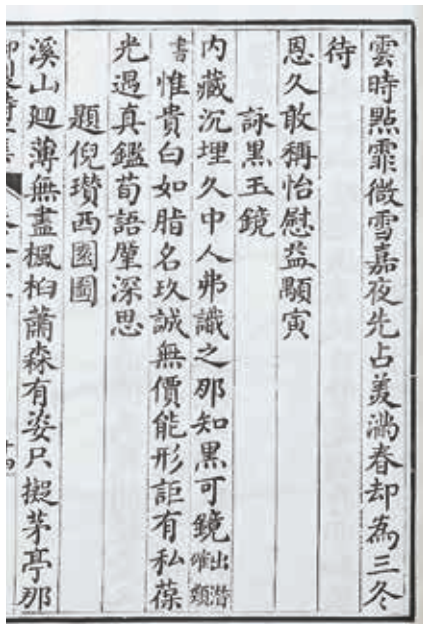 雲時點霏微雪嘉夜先占美満春却為三冬
待
恩久敢稱怡慰益顒寅
詠黒玉鏡
内藏沉埋久中人弗識之那知黒可鏡出潛確類
書惟貴白如脂名玖誠無價能形詎有私葆
光遇真鑑荀語肇深思
題倪瓚西園圖
溪山廻薄無盡楓桕蕭森有姿只擬茅亭那